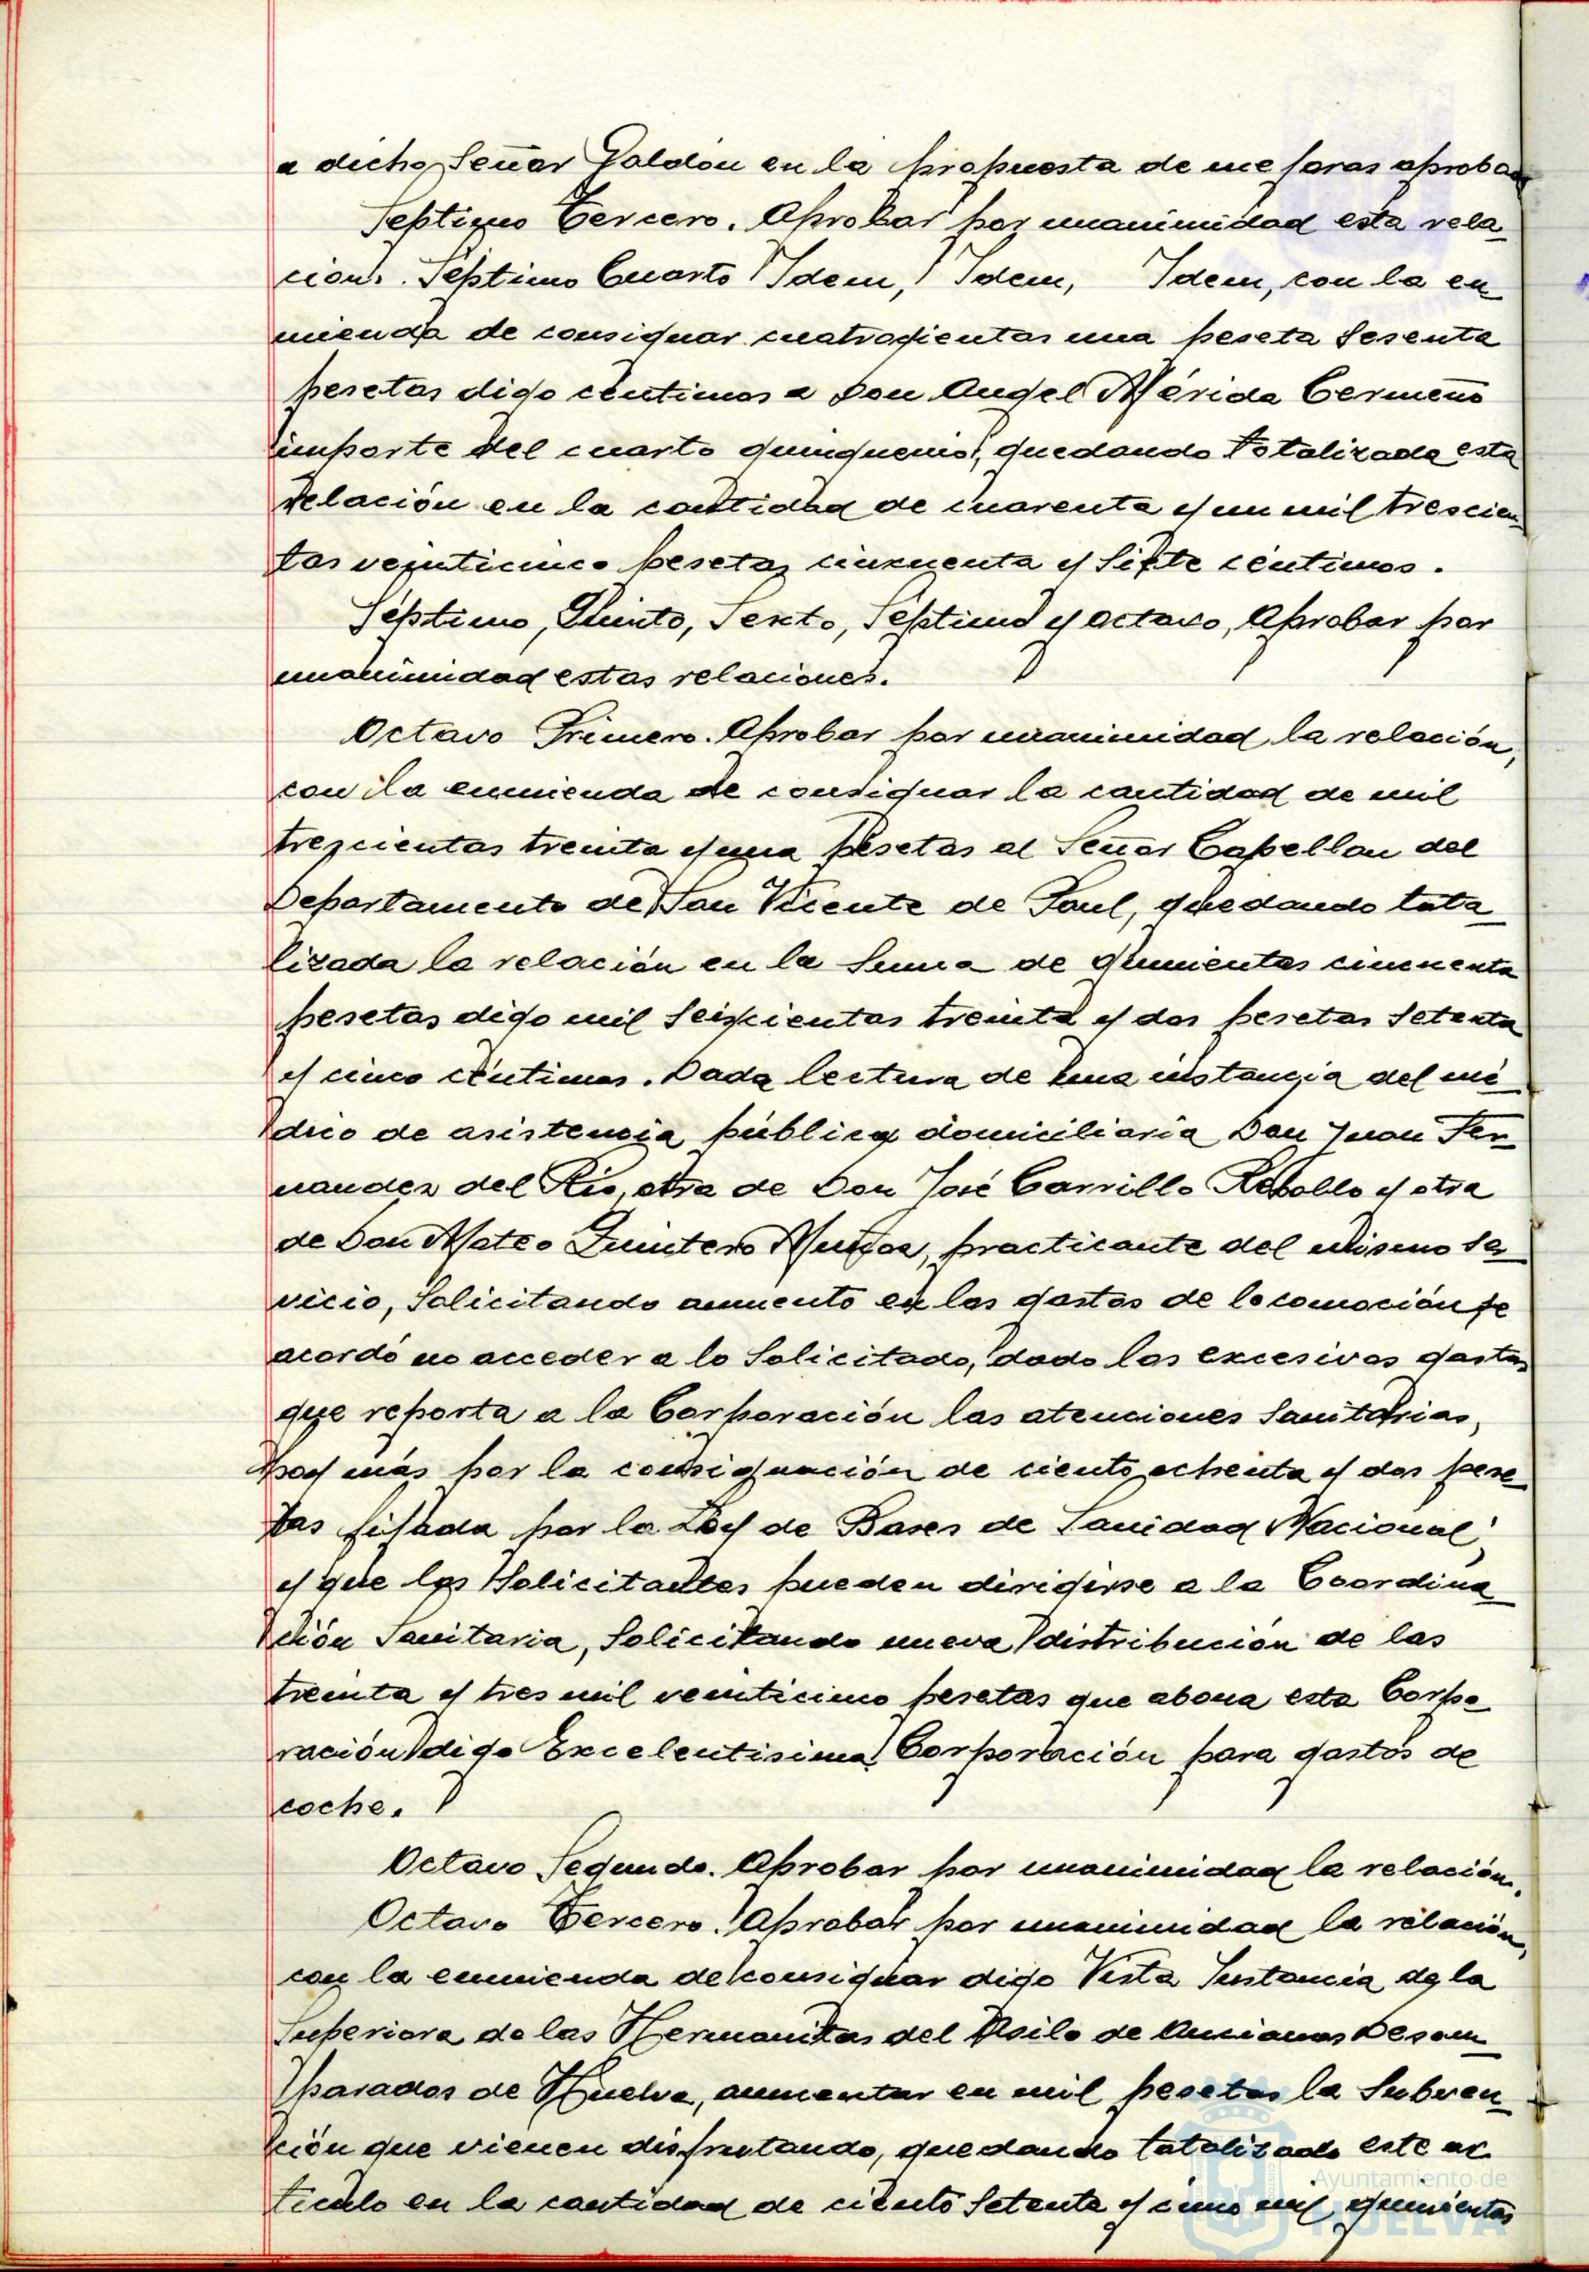 a dicho Señor Galdón en la propuesta de mejoras aprobada
Septimo Tercero. Aprobar por unanimidad esta rela-
cion. Séptimo Cuarto Idem, Idem, Idem, con la en-
mienda de consignar cuatrocientas una peseta sesenta
pesetas digo céntimos a Don Angel Mérida Cermeño
importe del cuarto quinquenio, quedando totalizada esta
relación en la cantidad de cuarenta y un mil trescien-
tas veinticinco pesetas cincuenta y siete céntimos.
Séptimo, Quinto, Sexto, Séptimo y octavo, Aprobar por
unanimidad estas relaciones.
Octavo Primero. Aprobar por unanimidad la relación,
con la enmienda de consignar la cantidad de mil
trescientas treinta y una pesetas al Señor Capellan del
Departamento de San Vicente de Paul, quedando tota-
lizada la relación en la suma de quinientas cincuenta
pesetas digo mil seiscientas treinta y dos pesetas setenta
y cinco céntimos. Dada lectura de una instancia del mé-
dico de asistencia pública domiciliaria Don Juan Fer-
nandez del Rio, otra de Don José Carrillo Rebollo y otra
de Don Mateo Quintero Muñoz, practicante del mismo ser-
vicio, solicitando aumento en los gastos de locomoción se
acordó no acceder a lo solicitado, dado los excesivos gastos
que reporta a la Corporación las atenciones sanitarias,
hoy más por la consignación de ciento ochenta y dos pese-
tas fijada por la Ley de Bases de Sanidad Nacional,
y que los solicitantes pueden dirigirse a la Coordina-
ción Sanitaria, solicitando nueva distribución de las
treinta y tres mil veinticinco pesetas que abona esta Corpo-
ración digo Excelentisima Corporación para gastos de
coche.
Octavo Segundo. Aprobar por unanimidad la relación.
Octavo Tercero. Aprobar por unanimidad la relación,
con la enmienda de consignar digo Vista Instancia de la
Superiora de las Hermanitas del Asilo de Ancianos Desam-
parados de Huelva, aumentar en mil pesetas la subven-
ción que vienen disfrutando, quedando totalizado este ar
ticulo en la cantidad de ciento setenta y cinco mil quinientas
Ayuntamiento de
HUELVA